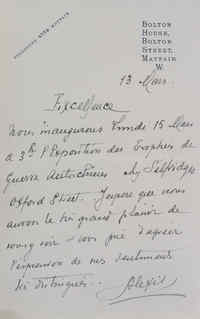 TELEPHONE 4118 MAYFAIR
BOLTON
HOUSE,
BOLTON
STREET,
MAYFAIR
W.
13 Mars.
Excellence
Nous inaugurons lundi 15 Mars
a 3h l'Exposition des Trophées de
Guerre Autrichiens chez Selfridges
Oxford Street. J'espère que nous
aurons le très grand plaisir de
vous y voir – vous prie d'agréer
l'expression de mes sentiments
les distingués.
Alexis